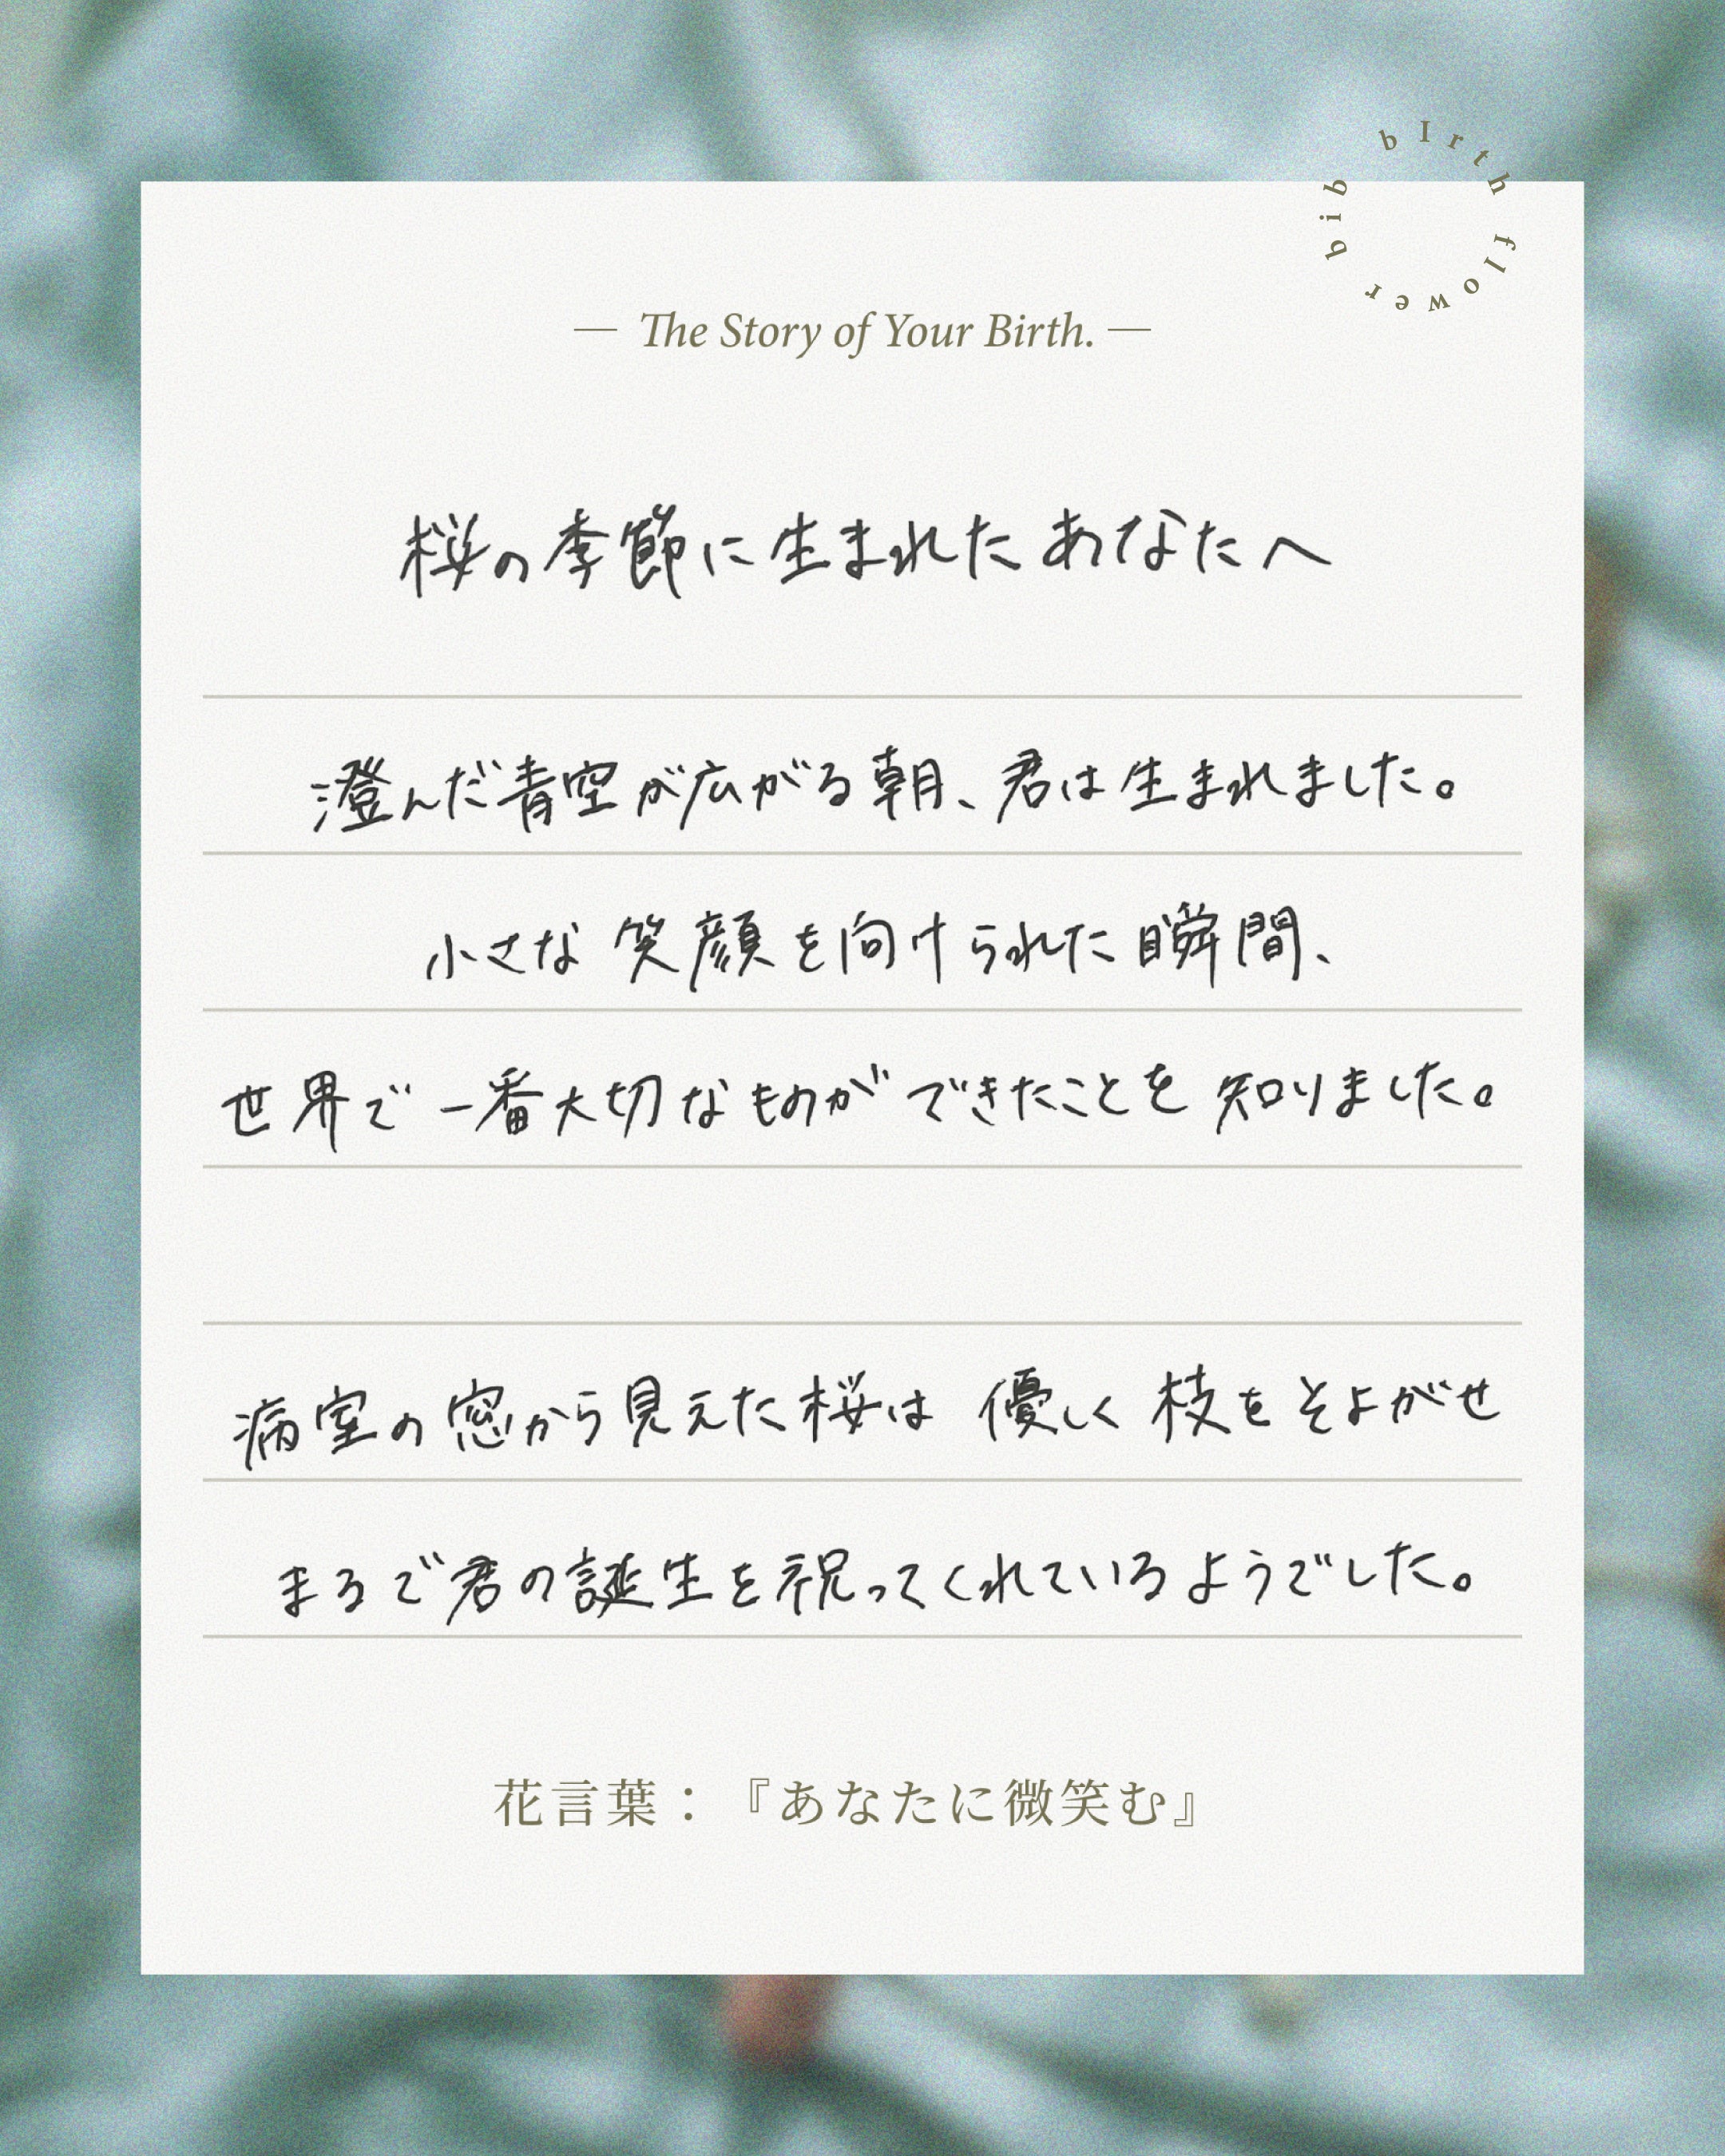 bIrth flower bib
— The Story of Your Birth. —
桜の季節に生まれたあなたへ
澄んだ青空が広がる朝、君は生まれました。
小さな笑顔を向けられた瞬間、
世界で一番大切なものができたことを知りました。
病室の窓から見えた桜は優しく枝をそよがせ
まるで君の誕生を祝ってくれているようでした。
花言葉：『あなたに微笑む』